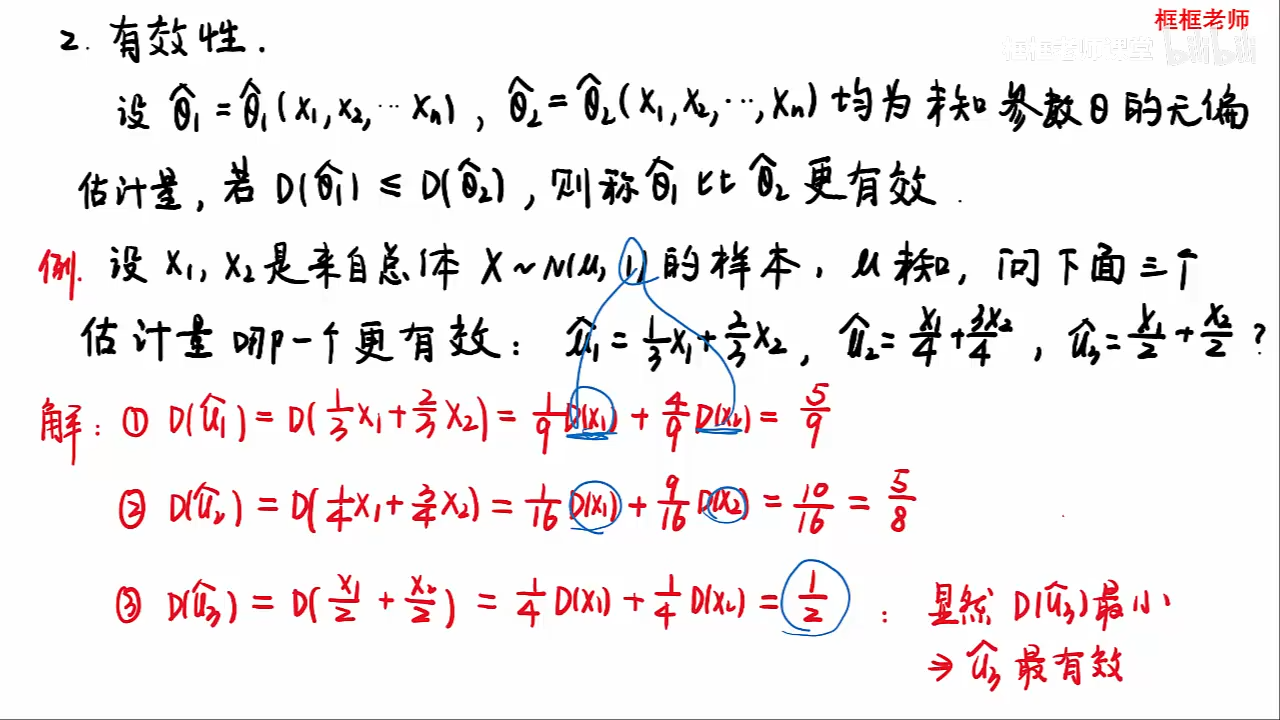 框框老师
框框老师课堂 bilibili
2. 有效性.
设 θ̂₁ = θ̂₁(X₁,X₂,…Xₙ), θ̂₂ = θ̂₂(X₁,X₂,…,Xₙ) 均为未知参数θ的无偏
估计量, 若 D(θ̂₁) ≤ D(θ̂₂), 则称 θ̂₁ 比 θ̂₂ 更有效.
例. 设 X₁, X₂ 是来自总体 X ~ N(μ, 1) 的样本, μ 未知, 问下面三个
估计量哪一个更有效: μ̂₁ = 1/3 X₁ + 2/3 X₂, μ̂₂ = X₁/4 + 3X₂/4, μ̂₃ = X₁/2 + X₂/2 ?
解: ① D(μ̂₁) = D(1/3 X₁ + 2/3 X₂) = 1/9 D(X₁) + 4/9 D(X₂) = 5/9
② D(μ̂₂) = D(1/4 X₁ + 3/4 X₂) = 1/16 D(X₁) + 9/16 D(X₂) = 10/16 = 5/8
③ D(μ̂₃) = D(X₁/2 + X₂/2) = 1/4 D(X₁) + 1/4 D(X₂) = 1/2 : 显然 D(μ̂₃) 最小
⇒ μ̂₃ 最有效